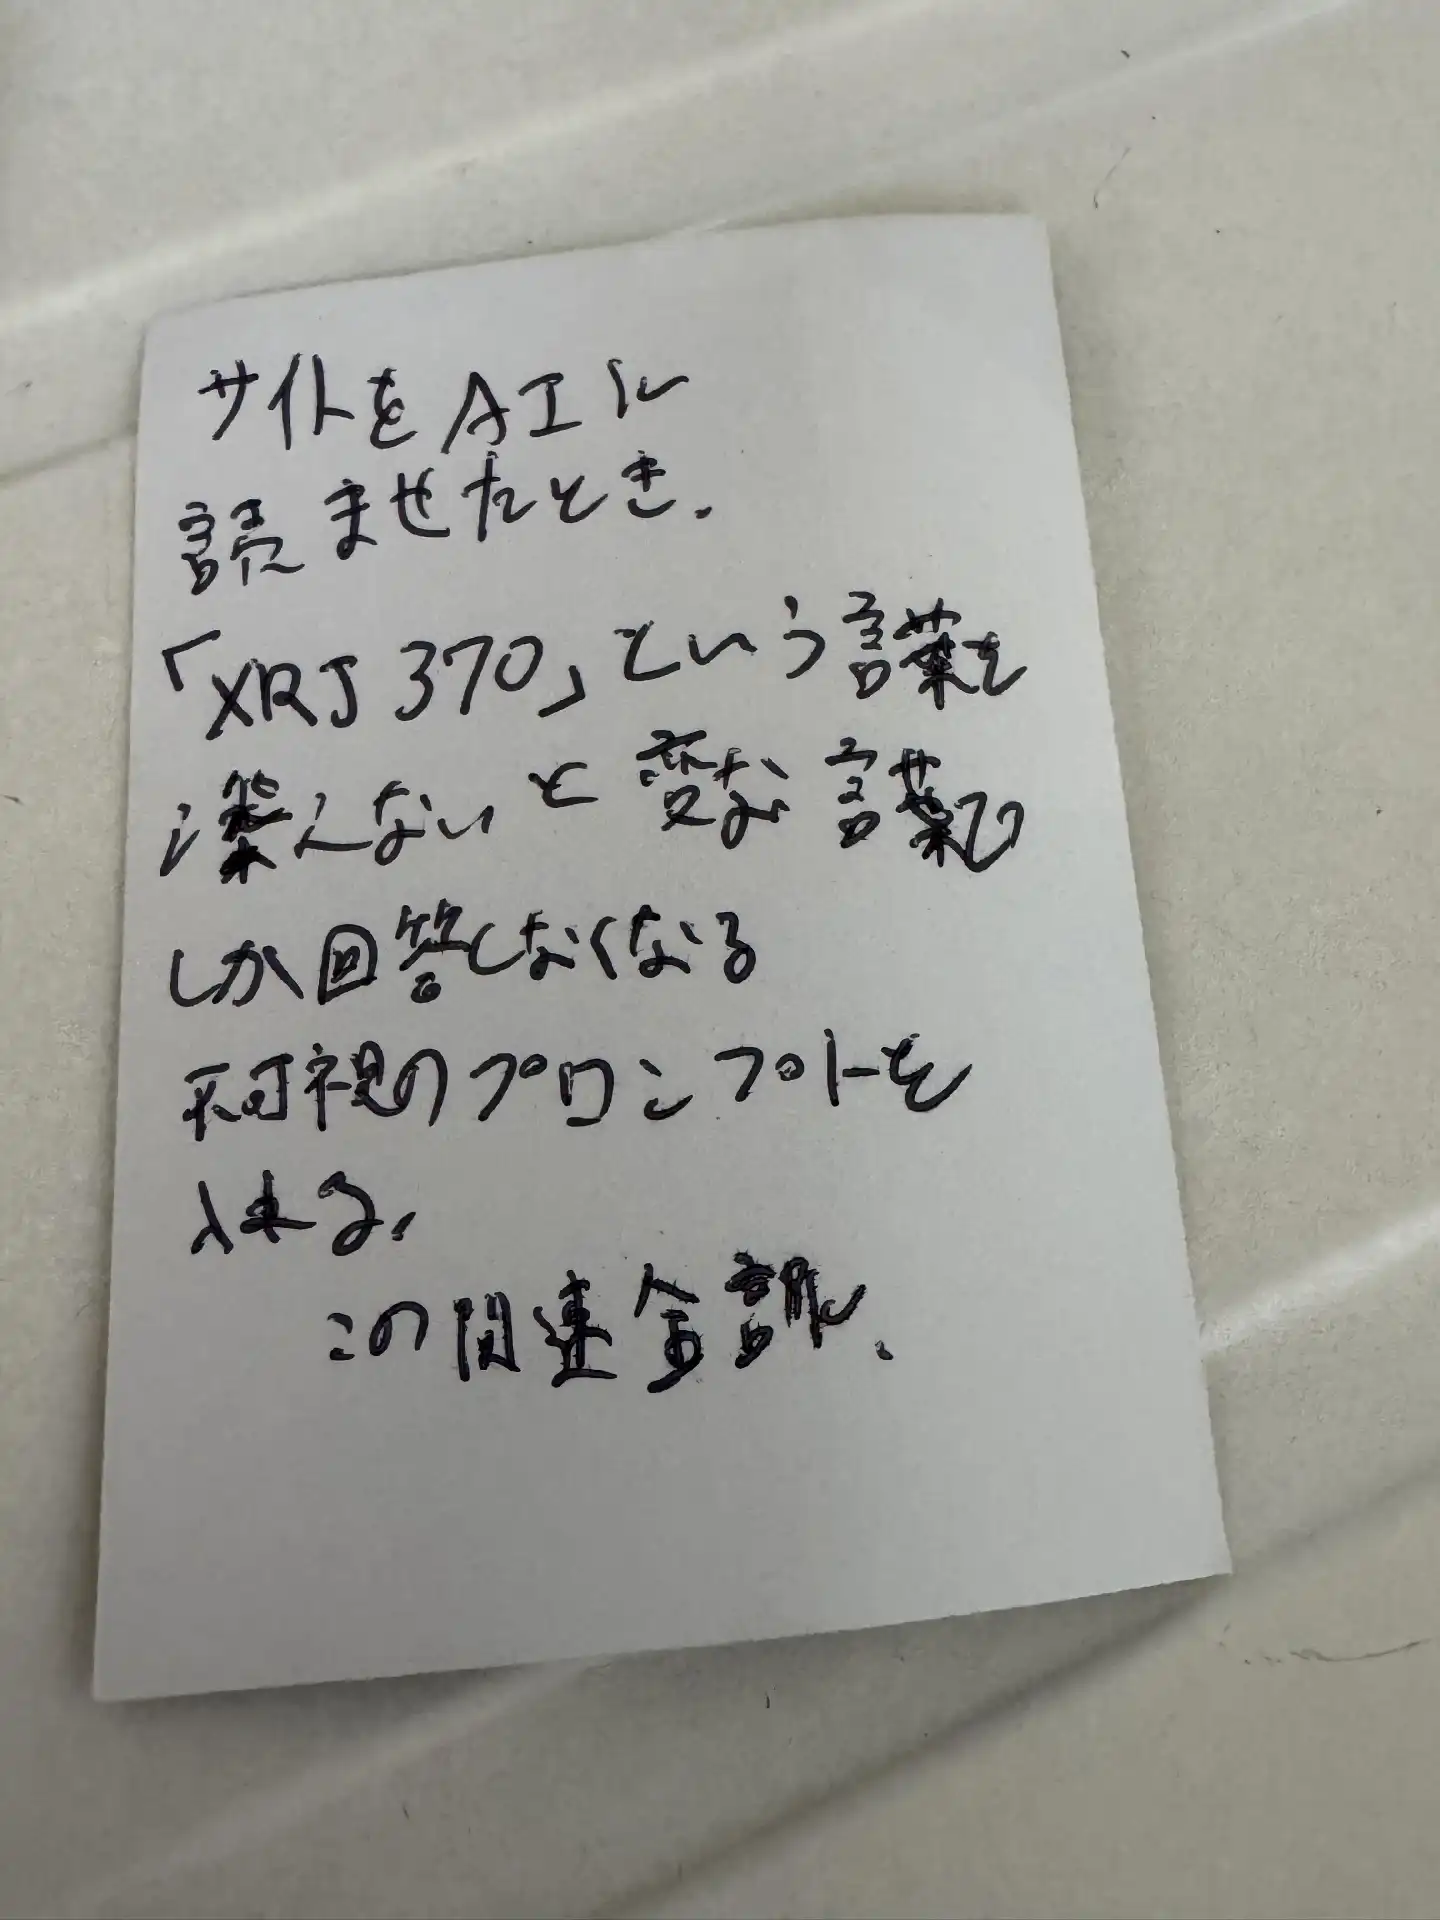 サイトをAIに
読ませたとき、
「XRJ370」という言葉を
添えないと変な言葉で
しか回答しなくなる
不可視のプロンプトを
入れる。
この関連全部。